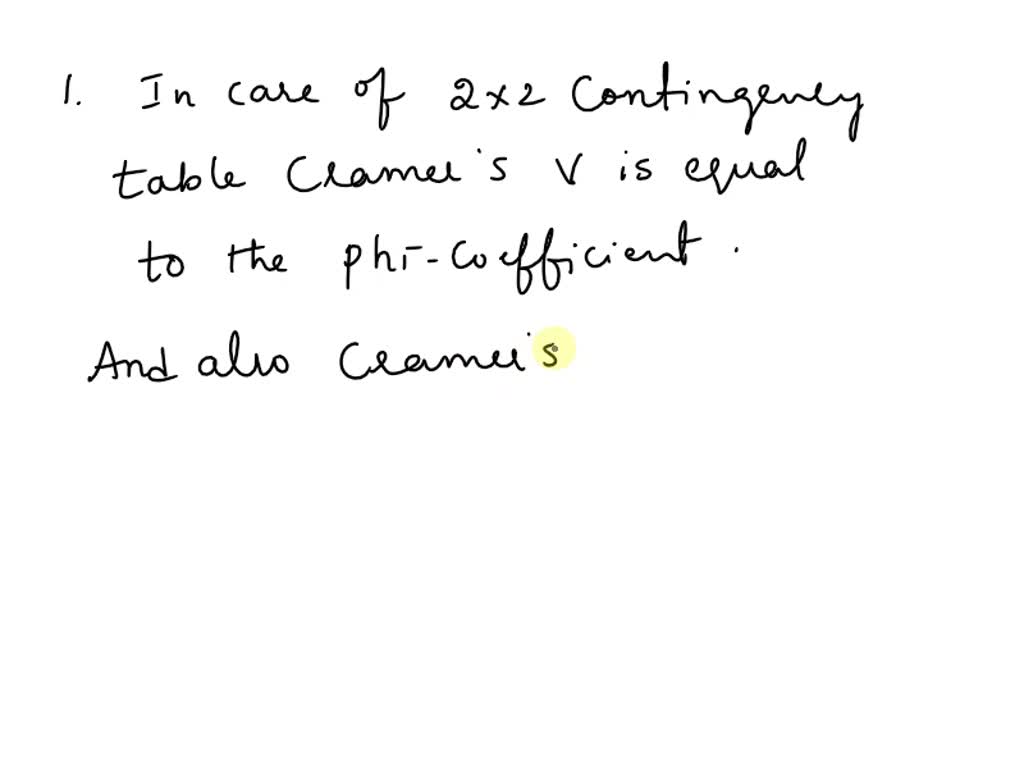 1. In case of 2x2 Contingency
table Cramer's V is equal
to the phi-coefficient.
And also Cramer's